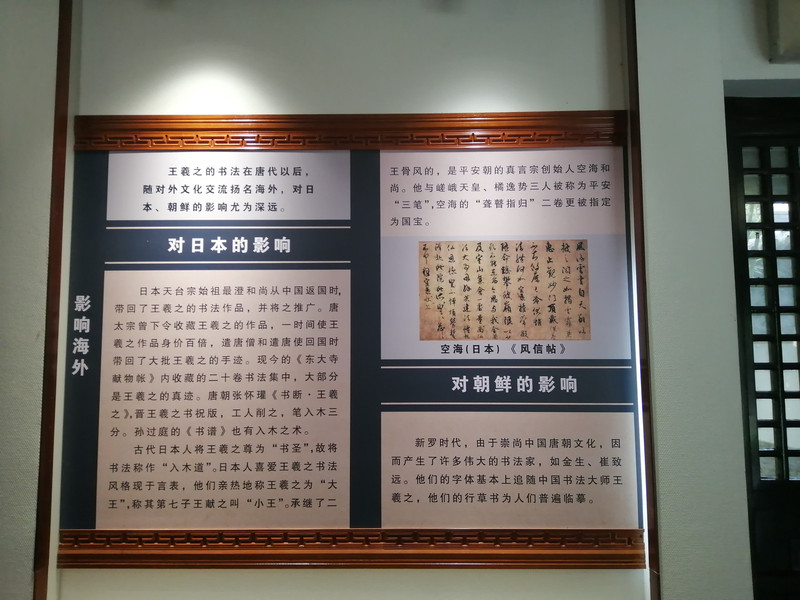 影响海外
王羲之的书法在唐代以后，
随对外文化交流扬名海外，对日
本、朝鲜的影响尤为深远。
对日本的影响
日本天台宗始祖最澄和尚从中国返国时，
带回了王羲之的书法作品，并将之推广。唐
太宗曾下令收藏王羲之的作品，一时间使王
羲之作品身价百倍，遣唐僧和遣唐使回国时
带回了大批王羲之的手迹。现今的《东大寺
献物帐》内收藏的二十卷书法集中，大部分
是王羲之的真迹。唐朝张怀瓘《书断·王羲
之》，晋王羲之书祝版，工人削之，笔入木三
分。孙过庭的《书谱》也有入木之术。
古代日本人将王羲之尊为“书圣”，故将
书法称作“入木道”。日本人喜爱王羲之书法
风格现于言表，他们亲热地称王羲之为“大
王”，称其第七子王献之叫“小王”。承继了二
王骨风的，是平安朝的真言宗创始人空海和
尚。他与嵯峨天皇、橘逸势三人被称为平安
“三笔”，空海的“聋瞽指归”二卷更被指定
为国宝。
空海（日本）《风信帖》
对朝鲜的影响
新罗时代，由于崇尚中国唐朝文化，因
而产生了许多伟大的书法家，如金生、崔致
远。他们的字体基本上追随中国书法大师王
羲之，他们的行草书为人们普遍临摹。